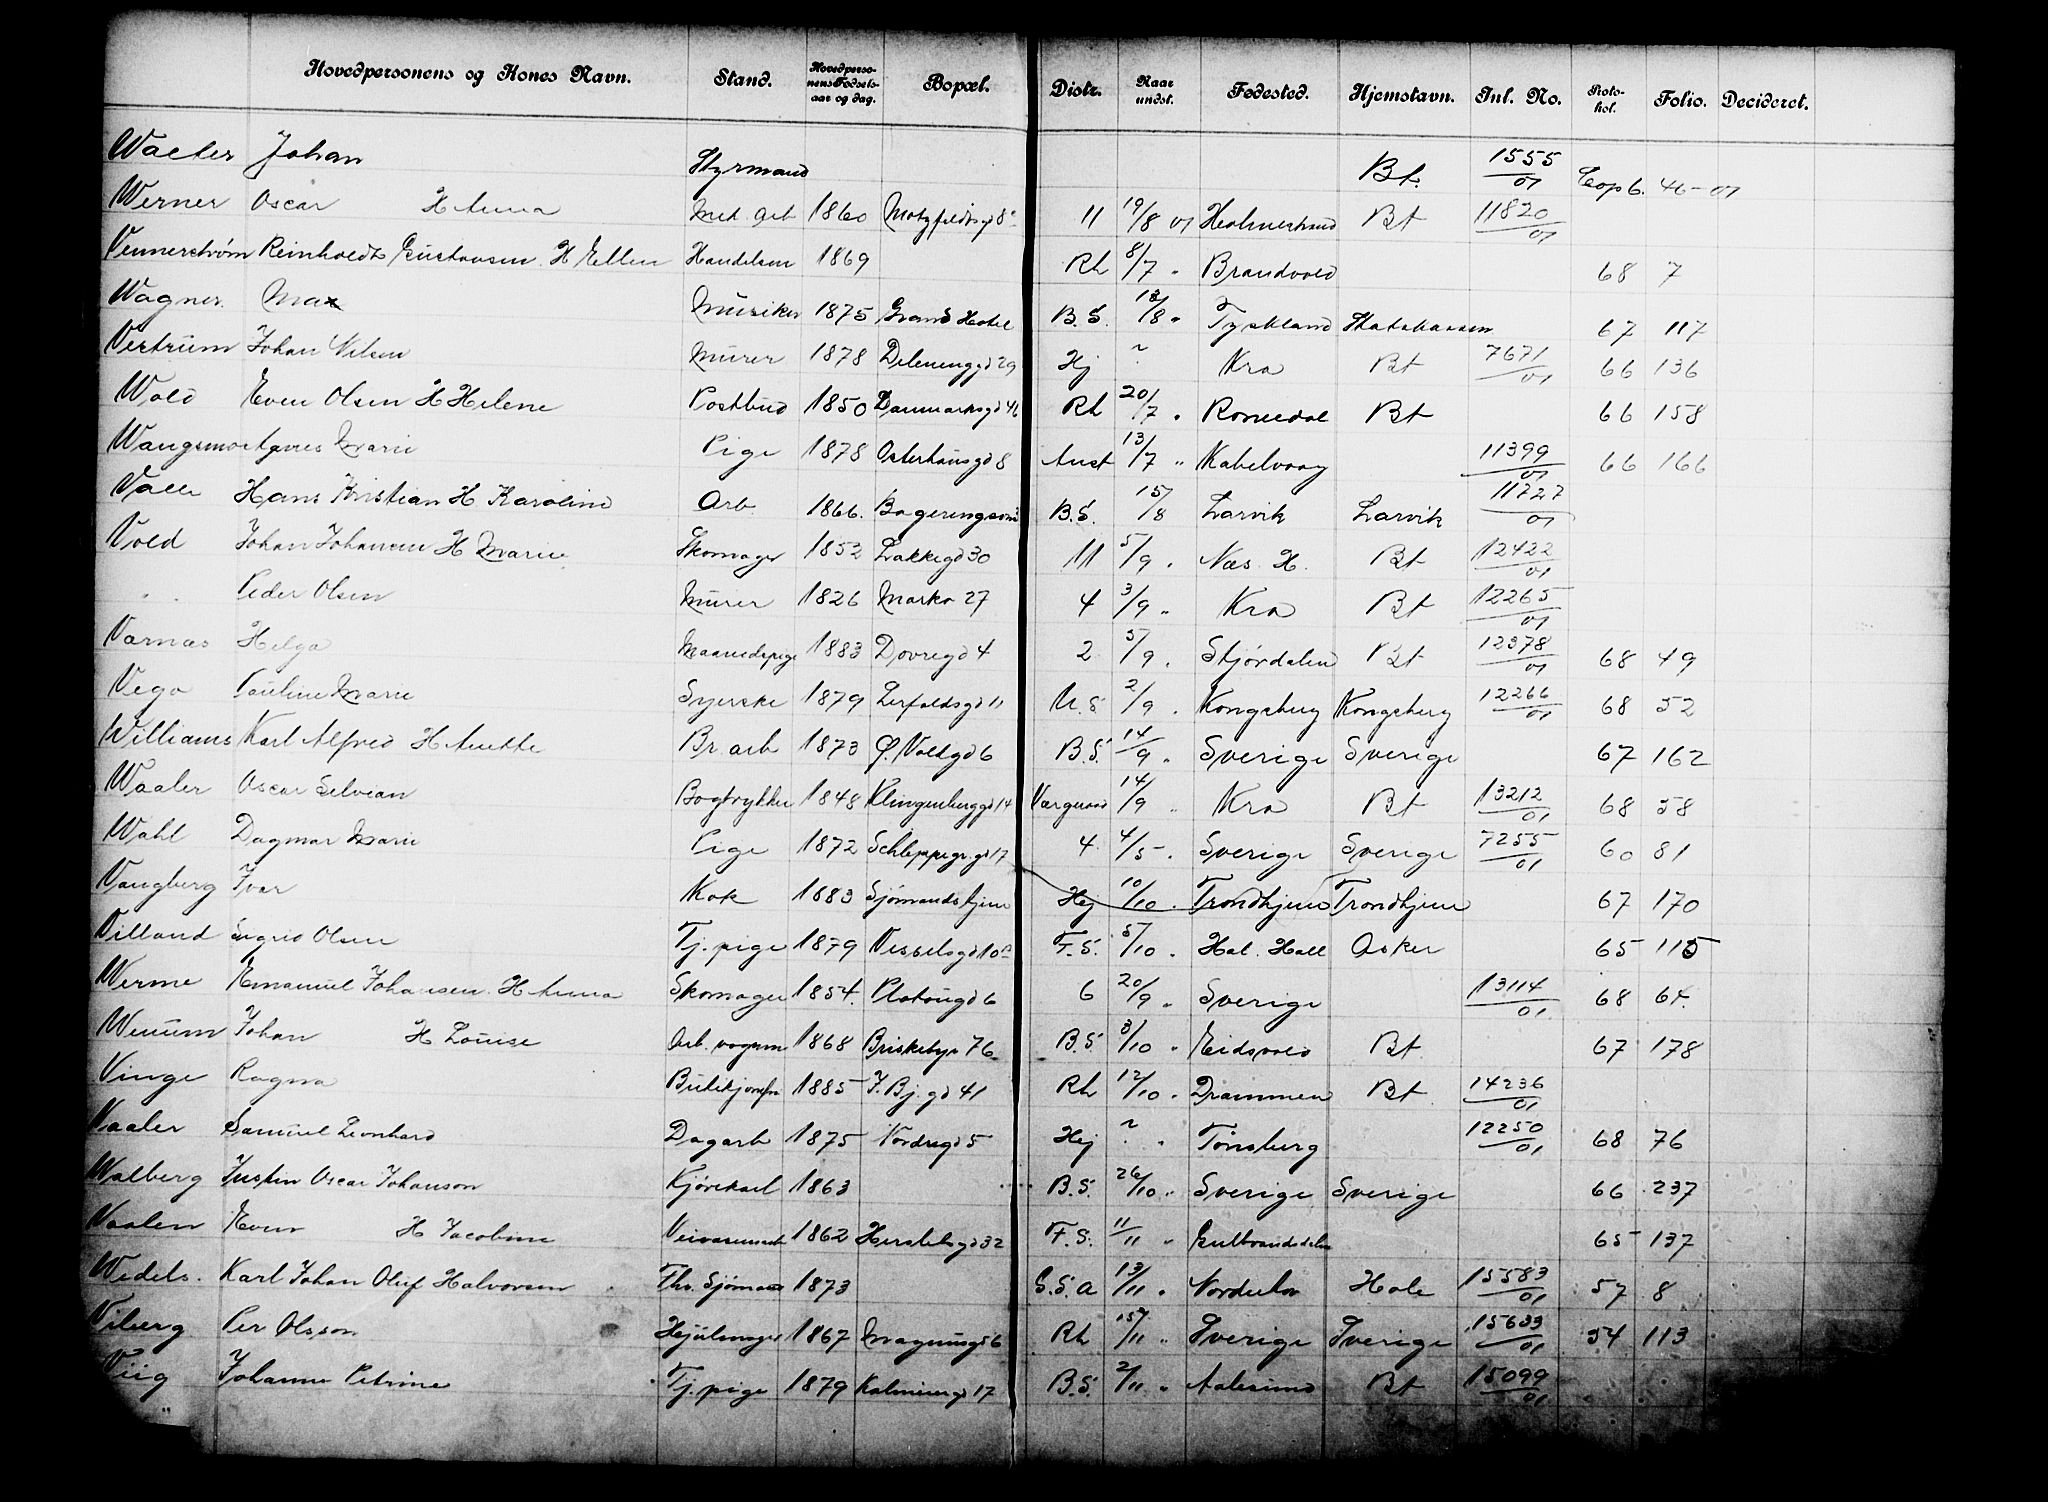 Hovedpersonens og Kones Navn. Stand. Hovedpersonens Fødselsaar og dag. Bopæl. Distr. Naar undst. Fødested. Hjemstavn. Inl. No. Protokol. Folio. Decideret.
Walter Johan Styrmand Bt. 1555/01 Cop 6. 46-01
Werner Oscar H Anna Med. arb 1860 Motzfeldtsgd 8 11 19/8 01 Holmestrand Bt 11820/01
Vennerstrøm Reinholdt Gustavsen H Ellen Handelsm 1869 Rh 8/7 " Brandvold 68 7
Wagner Max Musiker 1875 Grand Hotel B.S. 13/8 " Tyskland 67 117
Vestrum Johan Nilsen Murer 1878 Deleneng gd 29 Hj ? Kra Bt 7671/01 66 136
Wold Even Olsen H Helene Postbud 1850 Danmarksgd 46 Rh 20/7 " Romedal Bt 66 158
Wangsmo Agnes Marie Pige 1878 Osterhausgd 8 Anst 13/7 " Kabelvaag 11399/01 66 166
Valle Hans Kristian H Karoline Arb 1866. B.S. 15/8 Larvik Larvik 11727/01
Vold Johan Johansen H Marie Skomager 1852 Lakkegd 30 11 5/9 " Næs. H. Bt 12422/01
" " Peder Olsen Murer 1826 Markv 27 4 3/9 " Kra Bt 12265/01
Varnæs Helga Maanedspige 1883 Dovregd 4 2 5/9 " Stjørdalen Bt 12378/01 68 49
Vego Pauline Marie Syerske 1879 Lerfaldsgd 11 U.S 2/9 " Kongsberg Kongsberg 12266/01 68 52
Williams Karl Alfred H Anette Br. arb 1873 Ø. Voldgd 6 B.S. 14/9 " Sverige Sverige 67 162
Waaler Oscar Selvean Bogtrykker 1848 Klingenberggd 14 14/9 " Kra Bt 13212/01 68 58
Wahl Dagmar Marie Pige 1872 Schleppegr.gd 17 4 4/5 " Sverige Sverige 7255/01 60 81
Vangberg Ivar Kok 1883 Sjømandshjem Hej 10/10 " Trondhjem Trondhjem 67 170
Villand Sigrid Olsen Tj. pige 1879 Vesselsgd 10 F.S. 5/10 " Hol. Hall Asker 65 115
Werme Emanuel Johansen H Anna Skomager 1854. Platougd 6 6 20/9 " Sverige 13114/01 68 64.
Wenum Johan H Louise Arb. vognm 1868 Briskebyv 76 B.S 3/10 " Eidsvold Bt 67 178
Vinge Ragna Butikjomfr 1885 J. Bj. gd 41 Rh 12/10 " Drammen Bt 14236/01
Vaaler Samuel Leonhard Dagarb 1875 Nordregd 5 Hej ? " Tønsberg 12250/01 68 76
Walberg Justin Oscar Johanson Kjørekarl 1863 B.S. 26/10 " Sverige Sverige 66 237
Vaalen Even H Jacobine 1862 Herslebsgd 32 F.S. 11/11 " Gulbrandsdalen 65 137
Wedels. Karl Johan Oluf Halvorsen Fhv. Sjømand 1873 S.S.a 13/11 " Norderhov Hole 15583/01 57 8
Viberg Per Olsson Hjulmager 1867 Magnusgd 6 Rh 15/11 " Sverige Sverige 15633/01 54 113
Viig Johanne Petrine Tj. pige 1879 Kalmeiergd 17 B.S. 2/11 " Aalesund Bt 15099/01